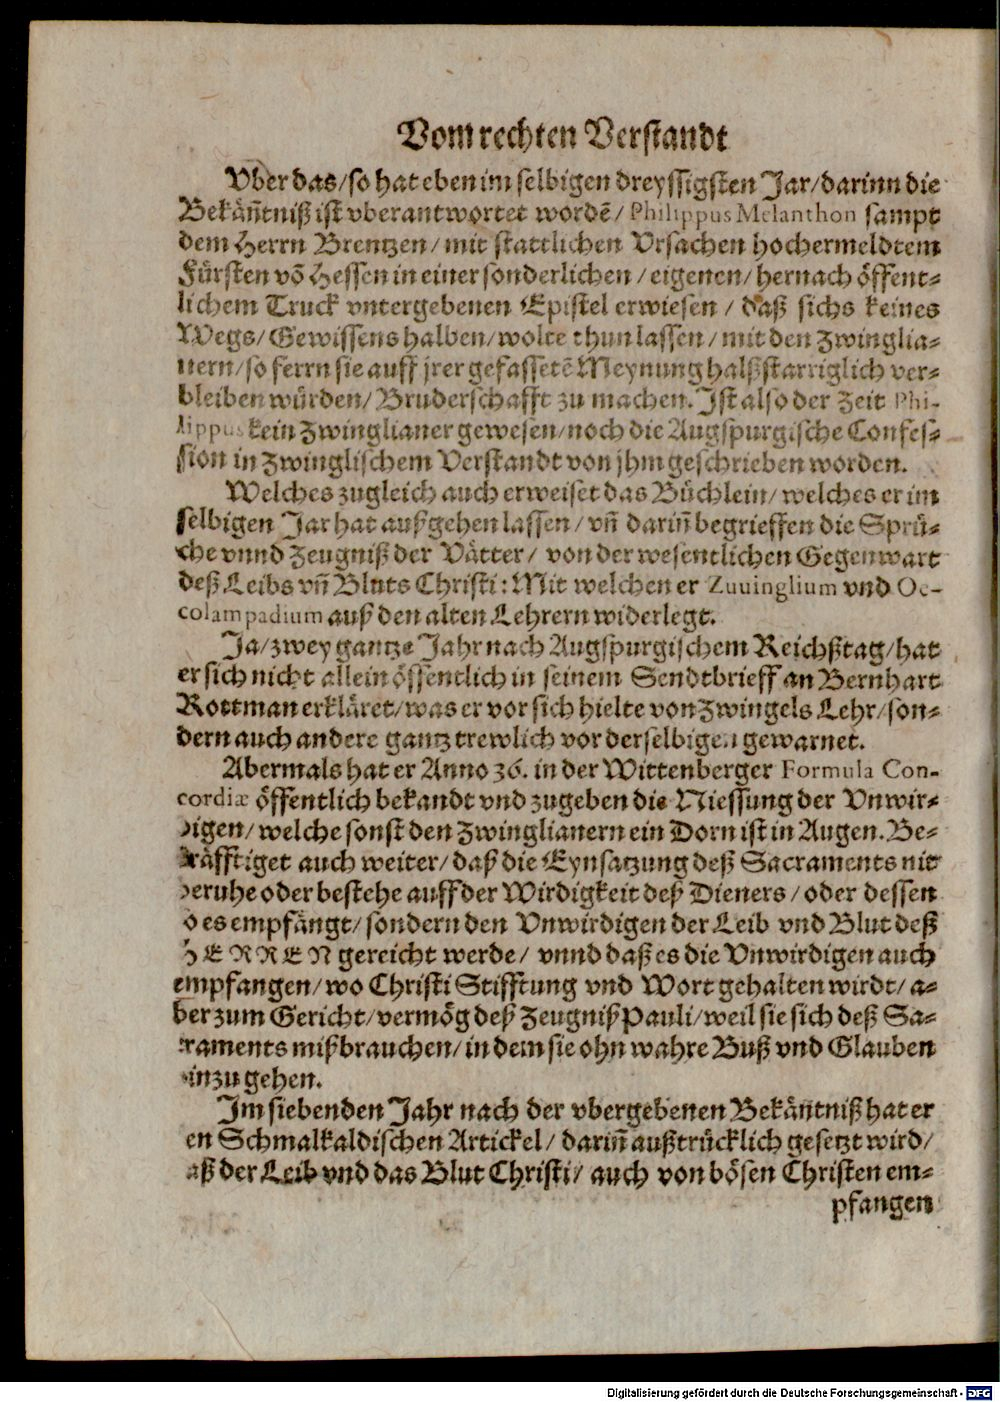 Vom rechten Verstandt
Vber das/so hat eben im selbigen dreyssigsten Jar/darinn die
Bekäñtniß ist vberantwortet wordē/ Philippus Melanthon sampt
dem Herrn Brentzen/mit stattlichen Vrsachen hochermeldtem
Fürsten võ Hessen in einer sonderlichen/eigenen/hernach öffent-
lichem Truck vntergebenen Epistel erwiesen/daß sichs keines
Wegs/Gewissens halben/wolte thun lassen/mit den Zwinglia-
nern/so ferrn sie auff jrer gefassetē Meynung halßstarriglich ver-
bleiben würden/Bruderschafft zu machen. Ist also der Zeit Phi-
lippus kein Zwinglianer gewesen/noch die Augspurgische Confes-
sion in Zwinglischem Verstandt von jhm geschrieben worden.
Welches zugleich auch erweiset das Büchlein/welches er im
selbigen Jar hat außgehen lassen/vñ dariñ begrieffen die Sprü-
che vnnd Zeugniß der Vätter/ von der wesentlichen Gegenwart
deß Leibs vñ Bluts Christi: Mit welchen er Zuuinglium vnd Oe-
colampadium auß den alten Lehrern widerlegt.
Ja/zwey gantze Jahr nach Augspurgischem Reichßtag/hat
er sich nicht allein öffentlich in seinem Sendtbrieff an Bernhart
Rottman erkläret/was er vor sich hielte von Zwingels Lehr/son-
dern auch andere gantz trewlich vor derselbigen gewarnet.
Abermals hat er Anno 36. in der Wittenberger Formula Con-
cordiæ öffentlich bekandt vnd zugeben die Niessung der Vnwir-
digen/welche sonst den Zwinglianern ein Dorn ist in Augen. Be-
kräfftiget auch weiter/daß die Eynsatzung deß Sacraments nit
beruhe oder bestehe auff der Wirdigkeit deß Dieners/oder dessen
so es empfängt/sondern den Vnwirdigen der Leib vnd Blut deß
HERREN gereicht werde/ vnnd daß es die Vnwirdigen auch
empfangen/wo Christi Stifftung vnd Wort gehalten wirdt/a-
ber zum Gericht/vermög deß Zeugniß Pauli/weil sie sich deß Sa-
craments mißbrauchen/in dem sie ohn wahre Buß vnd Glauben
hinzu gehen.
Im siebenden Jahr nach der vbergebenen Bekäñtniß hat er
en Schmalkaldischen Artickel/ dariñ außtrücklich gesetzt wird/
aß der Leib vnd das Blut Christi/ auch von bösen Christen em-
pfangen
Digitalisierung gefördert durch die Deutsche Forschungsgemeinschaft - DFG